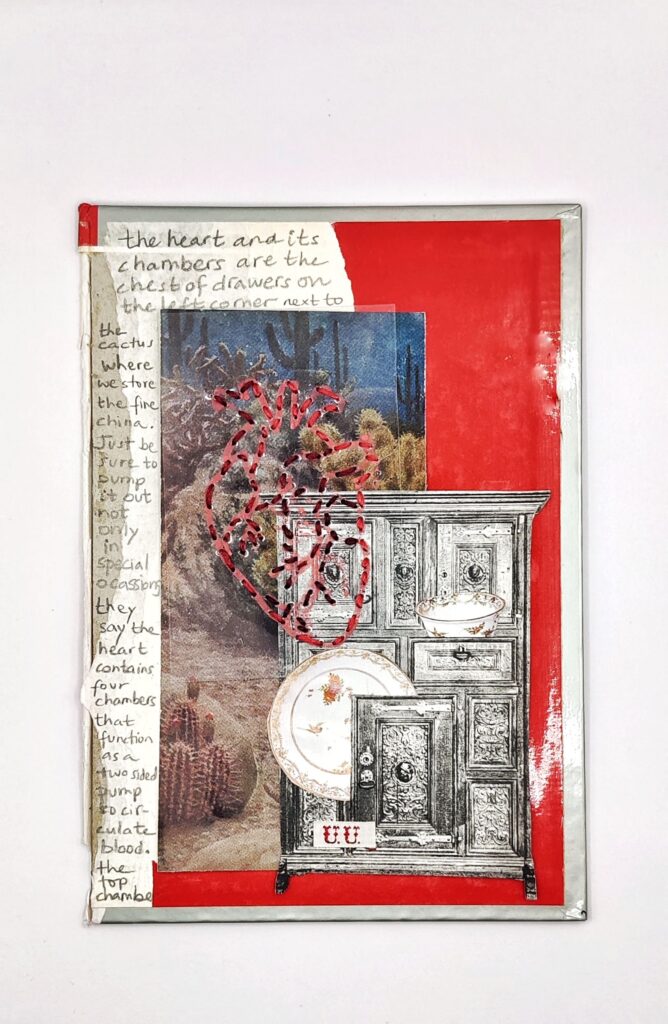 the heart and its
chambers are the
chest of drawers on
the left corner next to
the
cactus
where
we store
the fine
china.
Just be
sure to
pump
it out
not
only
in
special
ocassions
they
say the
heart
contains
four
chambers
that
function
as a
two sided
pump
to cir-
culate
blood.
the
top
chambe
U.U.